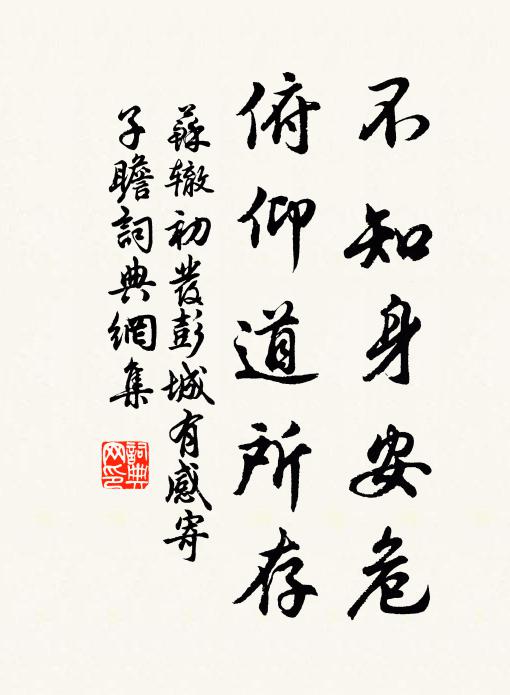 不知身安危
俯仰道所存
蘇辙初發彭城有感寄
子瞻詞典網集
詞典網印